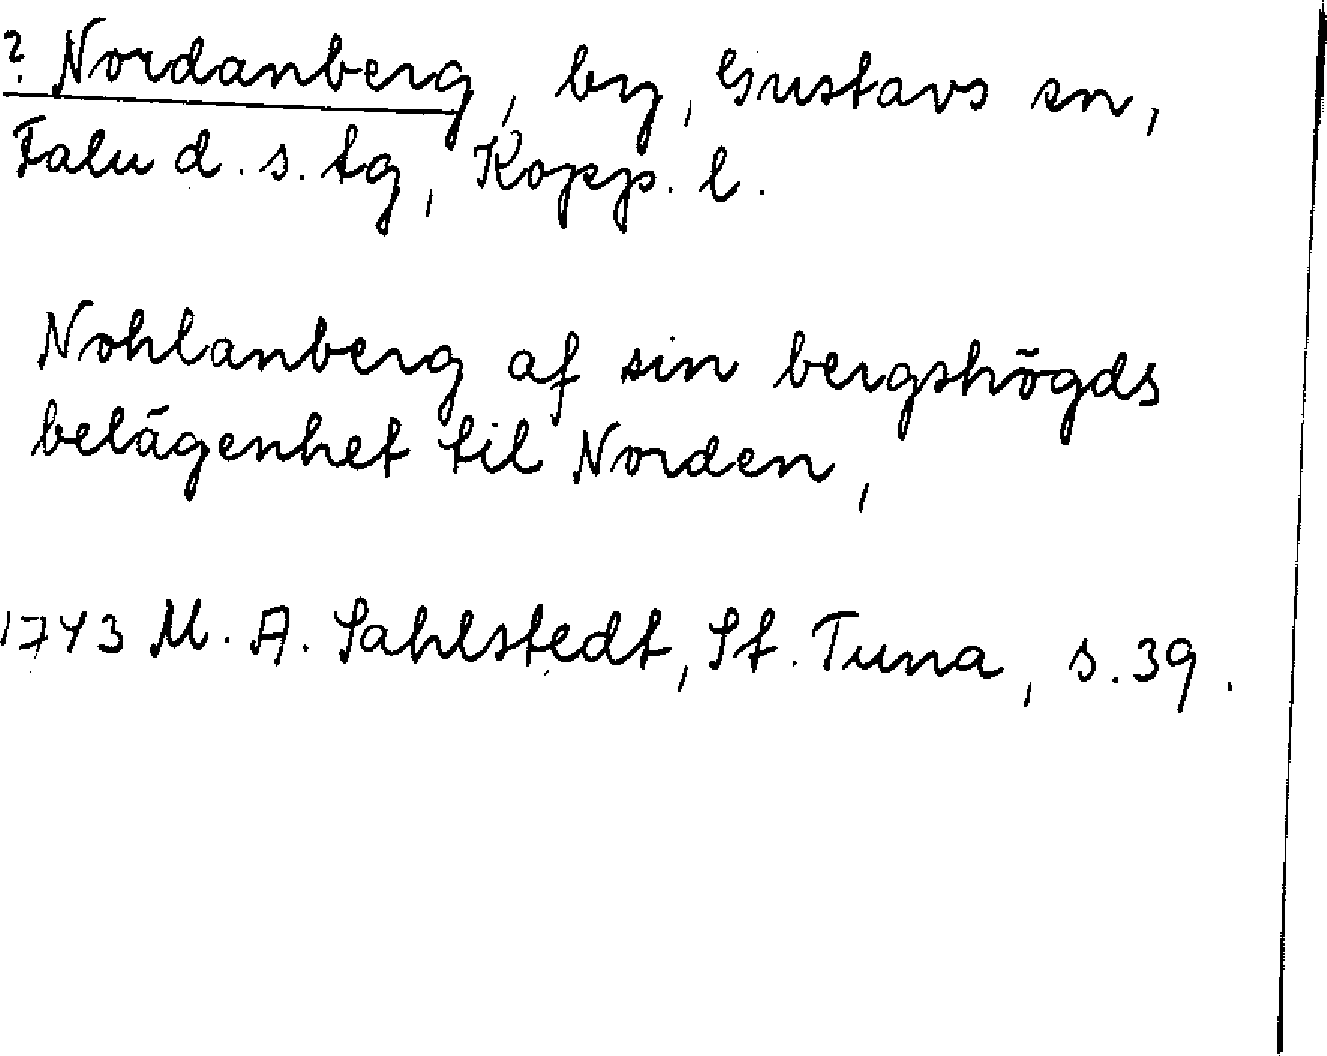 ? Nordanberg, by, Gustavs sn,
Falu d. s. tg, Kopp. l.
Nohlanberg af sin bergshögds
belägenhet til Norden,
1743 M. A. Sahlstedt, St. Tuna, s. 39.